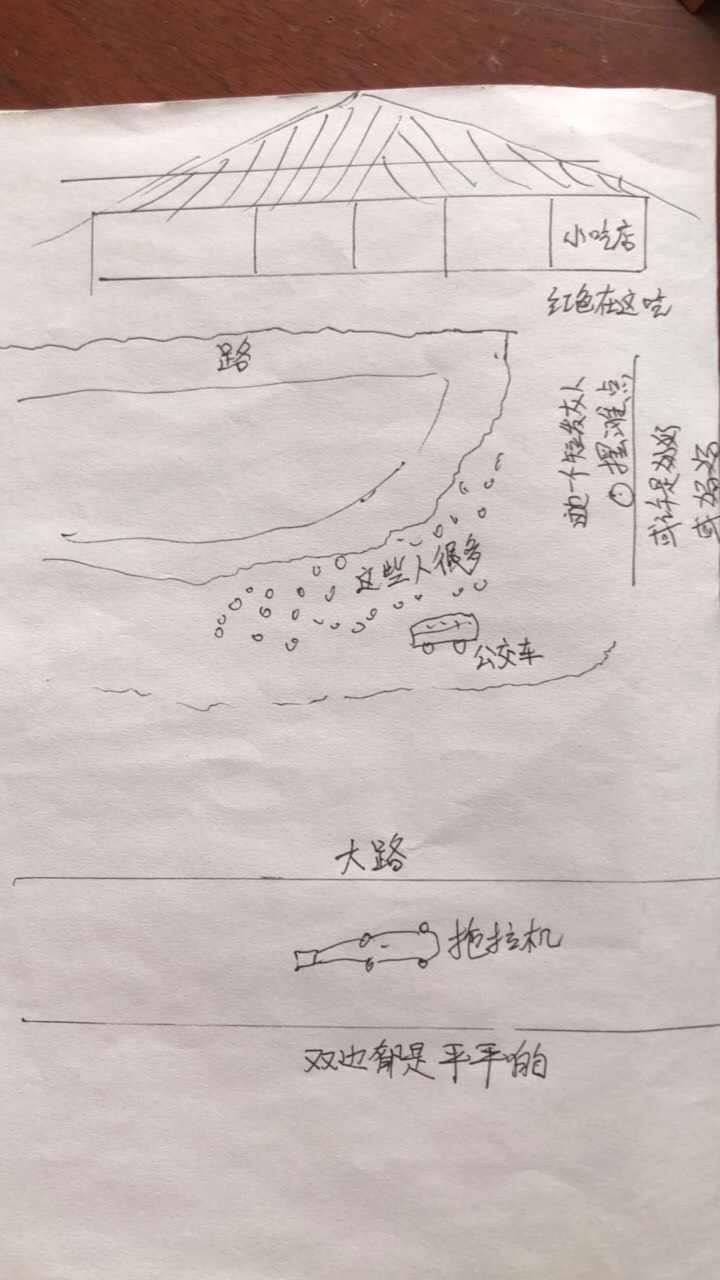 小吃店
红色在这吃
路
一个短发女人
摆滩点
或许是奶奶
或妈妈
这些人很多
公交车
大路
拖拉机
双边都是平平的